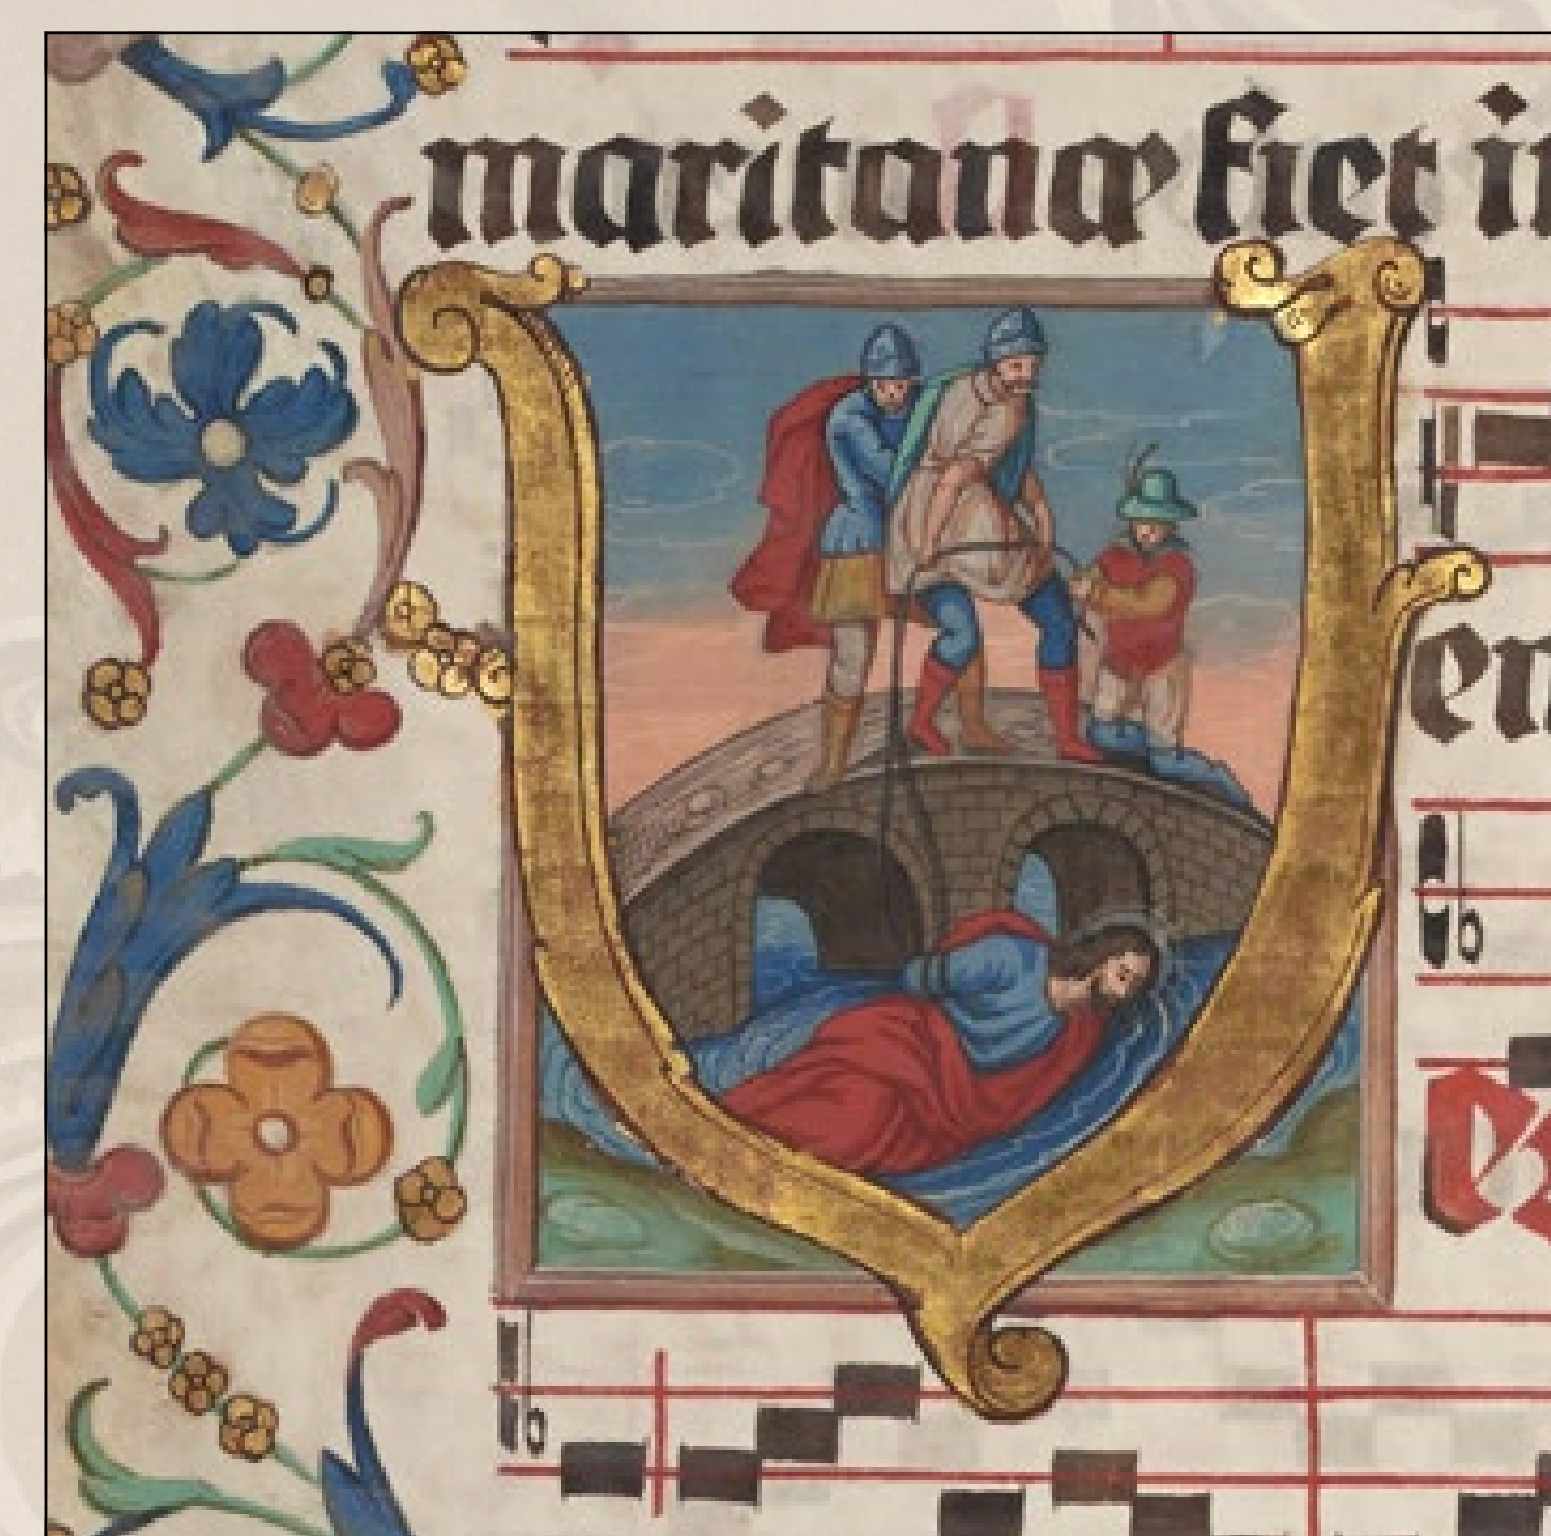 maritanæ fiet i
en